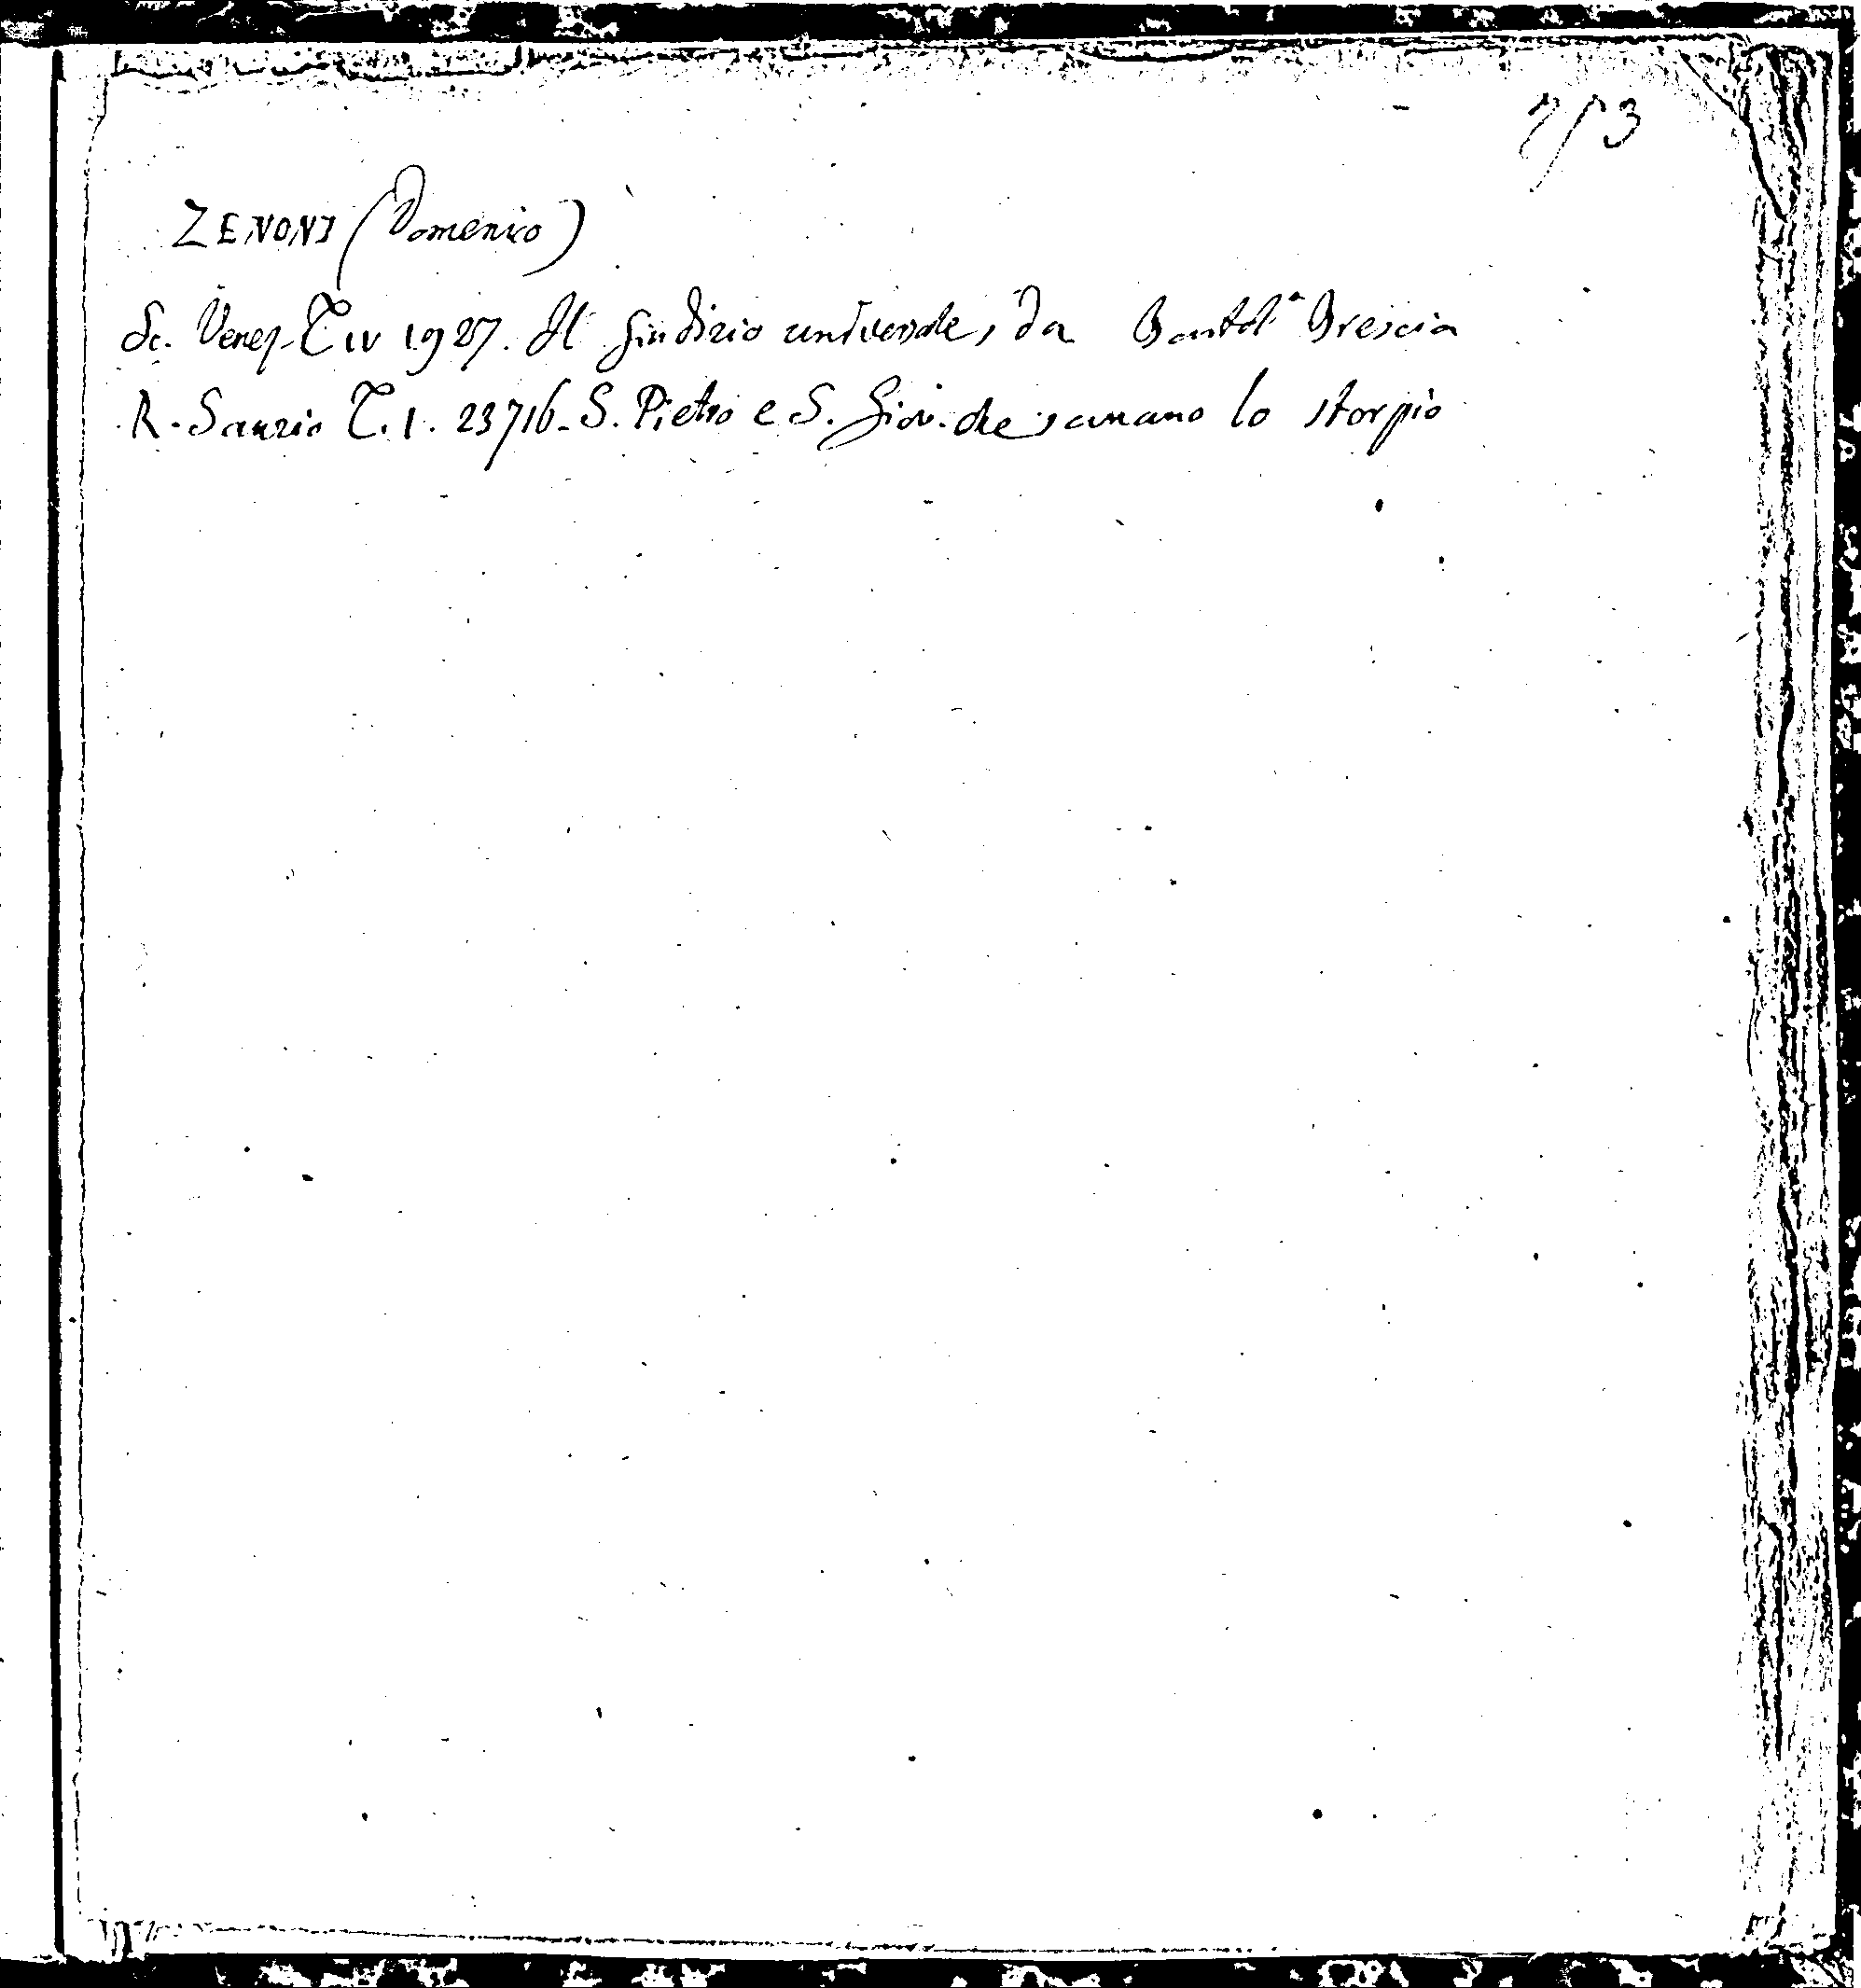 713
ZENONI (Domenico)
Sc. Venez. T. IV 1927. Il Giudizio universale, da Bartol.º Brescia
R. Sanzio T. I. 23716. S. Pietro e S. Giov. che sanano lo storpio